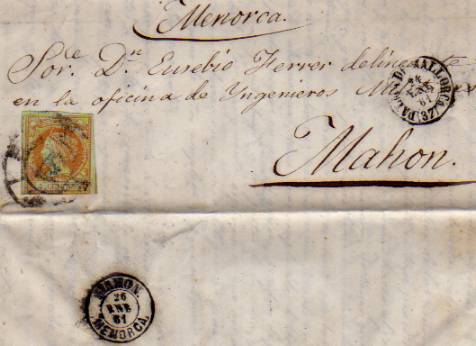 Menorca.
Sor. Dn. Eusebio Ferrer delineante
en la oficina de Yngenieros
Mahon.
PALMA DE MALLORCA
24
ENE
61
MAHON.
26
ENE
61
MENORCA.